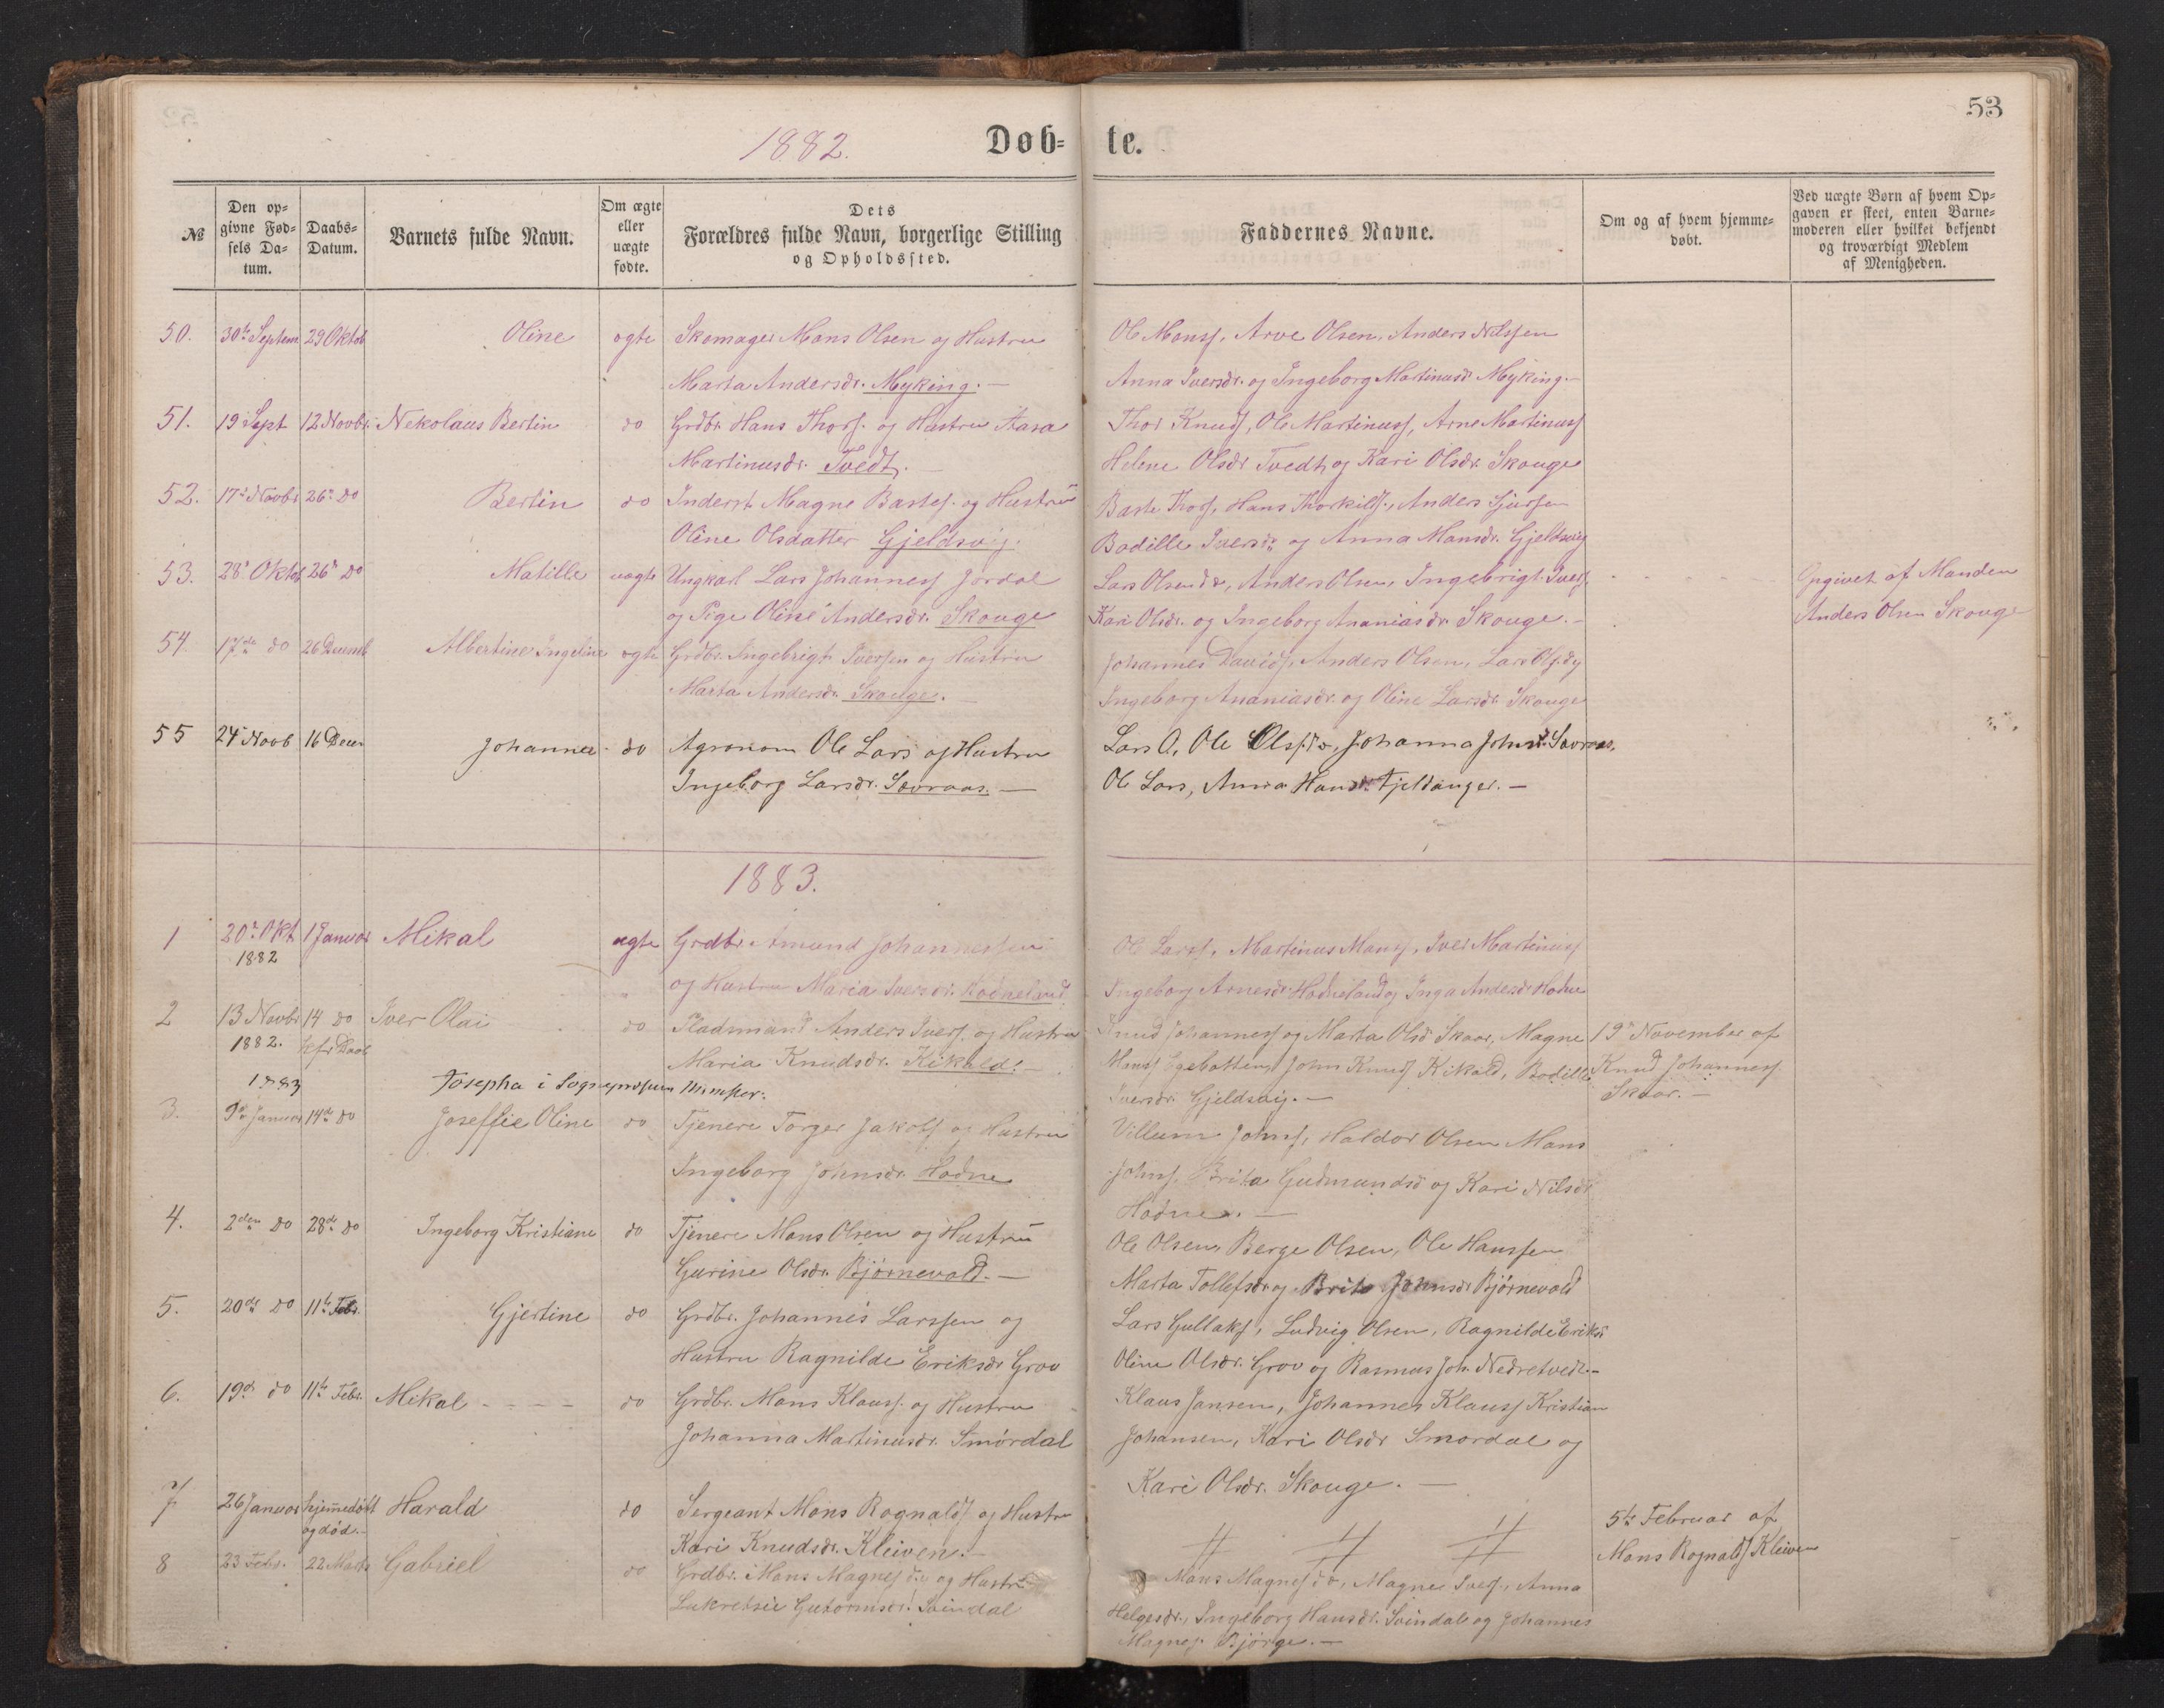 53
1882. Døb= te.
№
Den op=
givne Fød=
sels Da=
tum.
Daabs=
Datum.
Barnets fulde Navn.
Om ægte
eller
uægte
fødte.
Dets
Forældres fulde Navn, borgerlige Stilling
og Opholdssted.
Faddernes Navne.
Om og af hvem hjemme=
døbt.
Ved uægte Børn af hvem Op=
gaven er skeet, enten Barne=
moderen eller hvilket bekjendt
og troværdigt Medlem
af Menigheden.
50. 30te Septem 29 Oktob Oline ægte Skomager Mons Olsen og Hustru Ole Monss, Arve Olsen, Anders Nilssen
Marta Andersdr. Myking.— Anna Iversdr. og Ingeborg Martinusdr Myking.—
51. 19 Sept 12 Novbr. Nekolaus Bertin do Grdbr. Hans Thors. og Hustru Aasa Thor Knuds, Ole Martinuss, Arne Martinuss
Martinusdr. Tvedt.— Helene Olsdr Tvedt og Kari Olsdr. Skouge
52. 17de Novbr 26de do Bertin do Inderst. Magne Bastes. og Hustru Baste Thors, Hans Thorkilds., Anders Sjursen
Oline Olsdatter Gjeldsvig. Bodille Iversdr og Anna Monsdr. Gjeldsvig
53. 28de Oktob 26de do Matille uægte Ungkarl Lars Johanness Jordal Lars Olsen d.æ, Anders Olsen, Ingebrigt Ivers, Opgivet af Manden
og Pige Oline Andersdr. Skouge Kari Olsdr. og Ingeborg Ananiasdr Skouge.— Anders Olsen Skouge
54. 17de do 26 Decemb Albertine Ingeline ægte Grdbr. Ingebrigt Iversen og Hustru Johannes Davids, Anders Olsen, Lars Ols. d.y
Marta Andersdr. Skouge.— Ingeborg Ananiasdr. og Oline Larsdr Skouge
55 24de Novb 16 Decem Johannes do Agronom Ole Lars og Hustru Lars O, Ole Ols. d.æ, Johanna Johnsd. Sævraas,
Ingeborg Larsdr. Sævraas.— Ole Lars, Anna Hansd. Fjeldanger.—
1883.
1 20de Okt 1 Januar Mikal ægte Grdbr. Amund Johannessen Ole Larss, Martinus Monss, Iver Martinuss
1882 og Hustru Maria Iversdr. Hodneland. Ingeborg Arnesdr. Hodneland og Inga Andersdr Hodne
2 13 Novbr 14 do Iver Olai do Pladsmand Anders Ivers. og Hustru Knud Johanness og Marta Olsd Skaar, Magne 19de November af
1882. Maria Knudsdr. Kikald.— Egebotten, John Knuds Kikald, Bodille Knud Johanness
1883 Josepha i Iversdr. Gjeldsvig.— Skaar.—
3. 9de Januar 14de do Joseffie Oline do Tjener Torger Jakobs og Hustru Villum Johns, Haldor Olsen Mons
Ingeborg Johnsdr. Hodne Johns, Brita Gudmundsd og Kari Nilsdr
Hodne.—
4. 2den do 28de do Ingeborg Kristiane do Tjener Mons Olsen og Hustru Ole Olsen, Berge Olsen, Ole Hanssen
Gurine Olsdr. Bjørnevold.— Marta Tollefsdr og Brita Johnsdr Bjørnevold
5. 20de do 11te Febr. Gjertine do Grdbr. Johannes Larssen og Lars Gullaks, Ludvig Olsen, Ragnilde Eriksd
Hustru Ragnilde Eriksdr Grov Oline Olsdr. Grov og Rasmus Joh. Nedretvedt.—
6. 19de do 11te Febr. Mikal do Grdbr. Mons Klauss. og Hustru Klaus Jansen, Johannes Klauss Kristian
Johanna Martinusdr. Smørdal Johansen, Kari Olsdr Smørdal og
Kari Olsdr. Skouge.—
7 26 Januar hjemmedøbt Harald do Sergeant Mons Rognalds og Hustru 5te Februar af
og død.— Kari Knudsdr. Kleiven.— Mons Rognalds Kleiven
8 23 Febr. 22 Marts Gabriel do Grdbr. Mons Magnes d.y og Hustru Mons Magnes d.æ, Magne Ivers., Anna
Lukretsie Gutormsdr. Svindal Helgesdr., Ingeborg Hansdr. Svindal og Johannes
Magnes. Bjørge.—